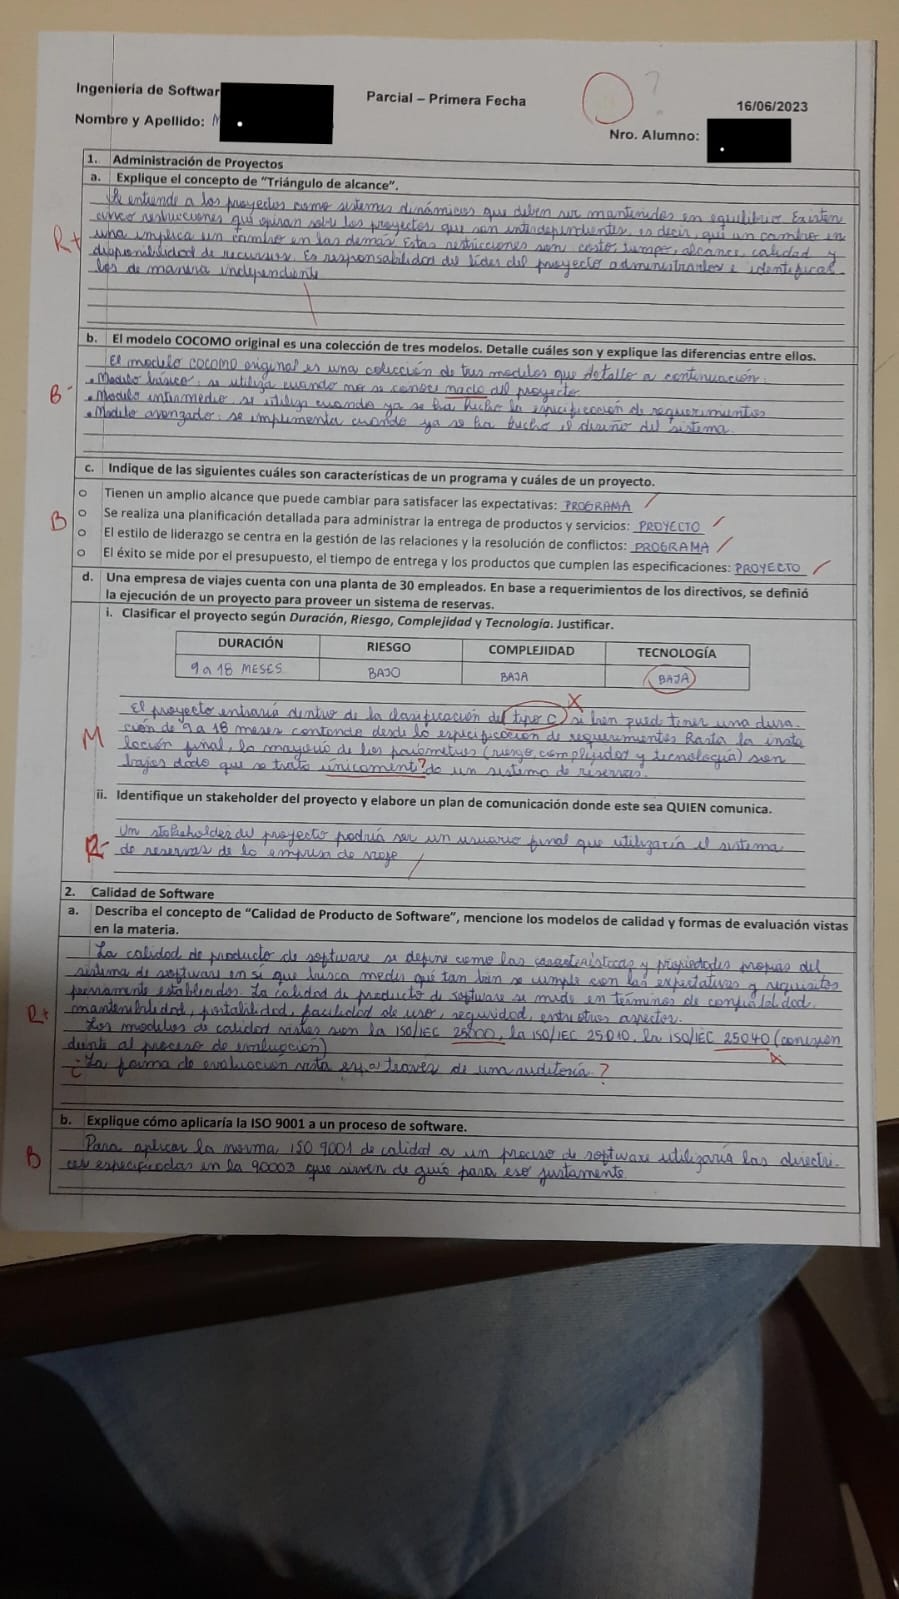 Ingeniería de Softwar
Parcial – Primera Fecha
16/06/2023
Nombre y Apellido: M
Nro. Alumno:
1. Administración de Proyectos
a. Explique el concepto de "Triángulo de alcance".
Se entiende a los proyectos como sistemas dinámicos que deben ser mantenidos en equilibrio. Existen
cinco restricciones que operan sobre los proyectos que son interdependientes, es decir, que un cambio en
R+
una implica un cambio en las demás. Estas restricciones son costo, tiempo, alcance, calidad y
disponibilidad de recursos. Es responsabilidad del líder del proyecto administrarlos e identificar
los de manera independiente
b. El modelo COCOMO original es una colección de tres modelos. Detalle cuáles son y explique las diferencias entre ellos.
El modelo COCOMO original es una colección de tres modelos que detallo a continuación:
B-
• Modelo básico: se utiliza cuando no se conoce nada del proyecto
• Modelo intermedio: se utiliza cuando ya se ha hecho la especificación de requerimientos
• Modelo avanzado: se implementa cuando ya se ha hecho el diseño del sistema.
c. Indique de las siguientes cuáles son características de un programa y cuáles de un proyecto.
B
o Tienen un amplio alcance que puede cambiar para satisfacer las expectativas: PROGRAMA
o Se realiza una planificación detallada para administrar la entrega de productos y servicios: PROYECTO
o El estilo de liderazgo se centra en la gestión de las relaciones y la resolución de conflictos: PROGRAMA
o El éxito se mide por el presupuesto, el tiempo de entrega y los productos que cumplen las especificaciones: PROYECTO
d. Una empresa de viajes cuenta con una planta de 30 empleados. En base a requerimientos de los directivos, se definió
la ejecución de un proyecto para proveer un sistema de reservas.
i. Clasificar el proyecto según Duración, Riesgo, Complejidad y Tecnología. Justificar.
DURACIÓN RIESGO COMPLEJIDAD TECNOLOGÍA
9 a 18 MESES BAJO BAJA BAJA
El proyecto entraría dentro de la clasificación del tipo C, si bien puede tener una dura-
ción de 9 a 18 meses contando desde la especificación de requerimientos hasta la insta
M
lación final, la mayoría de los parámetros (riesgo, complejidad y tecnología) son
bajos dado que se trata únicamente? de un sistema de reservas.
ii. Identifique un stakeholder del proyecto y elabore un plan de comunicación donde este sea QUIEN comunica.
R-
Un stakeholder del proyecto podría ser un usuario final que utilizaría el sistema
de reservas de la empresa de viaje
2. Calidad de Software
a. Describa el concepto de "Calidad de Producto de Software", mencione los modelos de calidad y formas de evaluación vistas
en la materia.
La calidad de producto de software se define como las características y propiedades propias del
sistema de software en sí que busca medir qué tan bien se cumple con las expectativas y requisitos
previamente establecidos. La calidad de producto de software se mide en términos de confiabilidad,
R+
mantenibilidad, portabilidad, facilidad de uso, seguridad, entre otros aspectos.
Los modelos de calidad vistos son la ISO/IEC 25000, la ISO/IEC 25010, la ISO/IEC 25040 (
diente al proceso de evaluación)
¿La forma de evaluación vista es a través de una auditoría.?
b. Explique cómo aplicaría la ISO 9001 a un proceso de software.
B
Para aplicar la norma ISO 9001 de calidad a un proceso de software utilizaría las directri-
ces especificadas en la 90003 que sirven de guía para eso justamente.